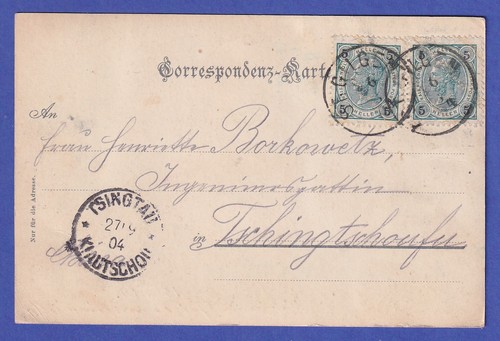 Correspondenz-Karte
An
Frau Henriette Borkowetz
Ingenieursgattin
in Tschingtschoufu
Nur für die Adresse.
TSINGTAU
04
KIAUTSCHOU
5 5
5 5